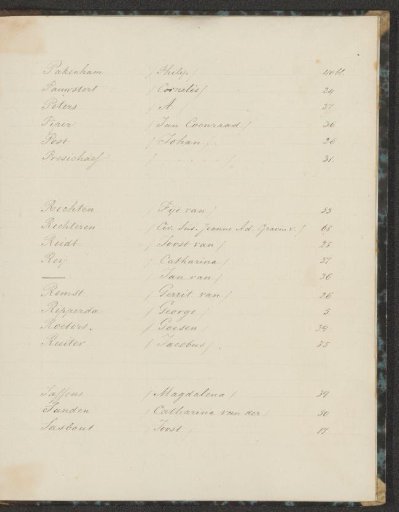 Pakenham (Philip)
Pauwstert (Cornelis) 24
Peters (A 27
Pirer (Jan Coenraad) 26
Post (Johan) 26
Preschaef ( ) 31
Rechten (Fye van) 33
Rechteren 65
Reidt (Joost van) 25
Rey (Catharina) 27
—— (Jan van) 26
Remst (Gerrit van) 26
Ripperda (George) 5
Roeters (Goosen) 39
Ruiter (Jacobus) 35
Saffens (Magdalena) 39
Sanden (Catharina van der) 30
Sasbout (Joost) 17